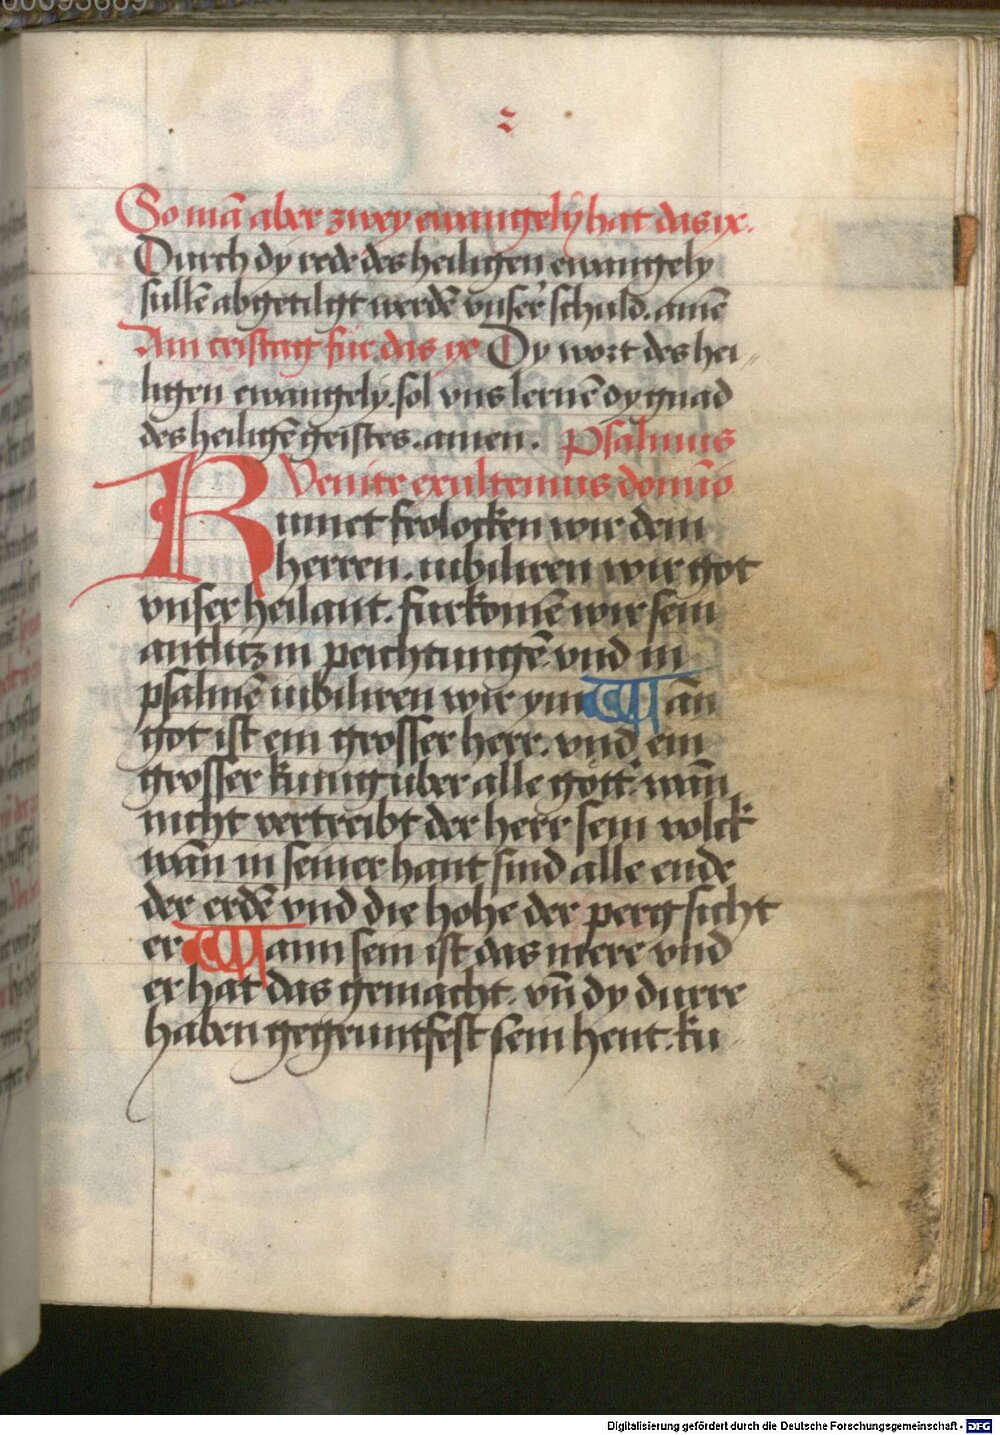 00093669
2
So mā aber zwey ewangely hat das ix.
Durch dy rede des heiligen ewangely
süllē abgetilgt werdē vnser schuld. amē
Am cristag für das ix Dy wort des hei„
ligen ewangely. sol vns lernē dy gnad
des heiligē geistes. amen. Psalmus
Venite exultemus domīo
Kumet frolocken wir dem
herren. iubiliren wir got
vnser heilant. furkomē wir sein
antlitz in peichtungē vnd in
psalmē iubiliren wir ym Wān
got ist ein grosser herr. vnd ein
grosser kunig über alle gött. wān
nicht vertreibt der herr sein volck
wān in seiner hant sind alle ende
der erdē vnd die hohe der perg sicht
er Wann sein ist das mere vnd
er hat das gemacht. vn̄ dy durre
haben gegruntfest sein hent. ku
Digitalisierung gefördert durch die Deutsche Forschungsgemeinschaft - DFG